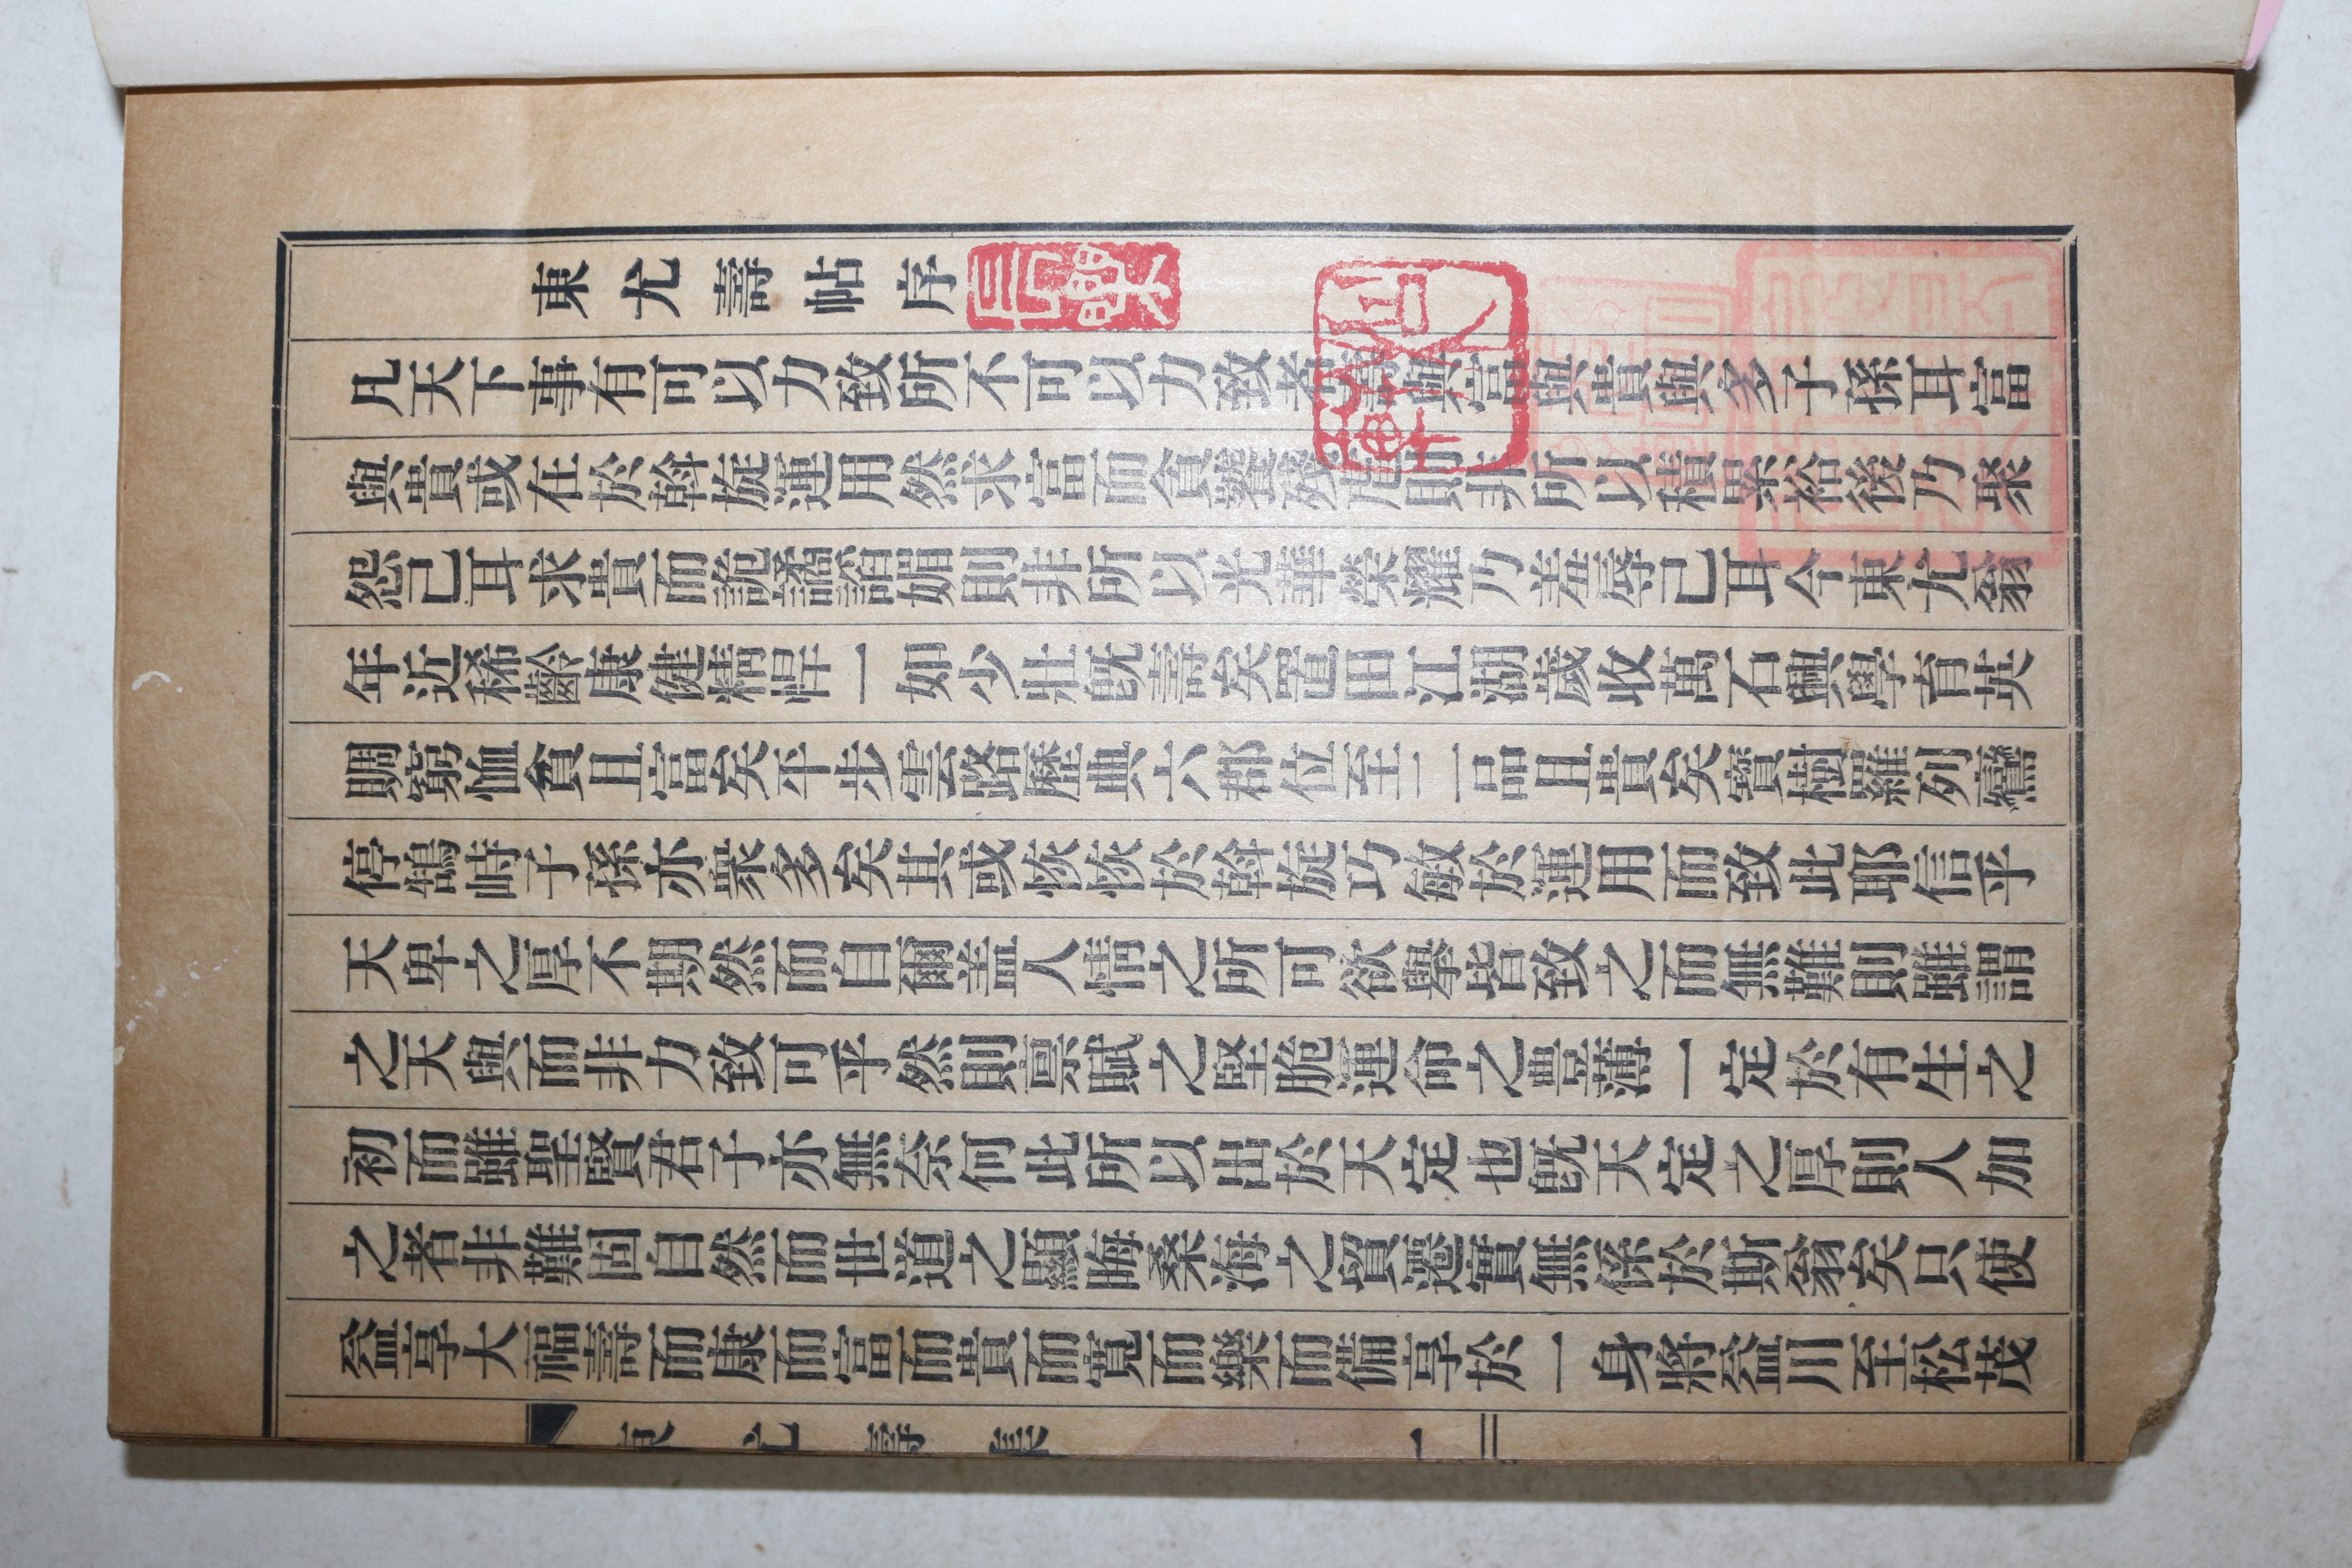 東尤壽帖序
凡天下事有可以力致所不可以力致者壽與富與貴與多子孫耳富
與貴或在於斡旋運用然求富而貪饕則非所以積累裕後乃聚
怨已耳求貴而詭譎謟媚則非所以光華榮耀乃羞辱已耳今東尤翁
年近稀齡康健精悍一如少壯旣壽矣置田江湖歲收萬石興學育英
賙窮恤貧且富矣平步雲路歷典六郡位至一品且貴矣寶樹羅列鸞
停鵠峙子孫亦衆多矣其或恢恢於斡旋巧敏於運用而致此耶信乎
天卑之厚不期然而自爾盖人情之所可欲擧皆致之而無難則雖謂
之天與而非力致可乎然則禀賦之堅脆運命之豊薄一定於有生之
初而雖聖賢君子亦無奈何此所以出於天定也旣天定之厚則人加
之者非難固自然而世道之顯晦桑海之貿遷實無係於斯翁矣只使
益享大福壽而康而富而貴而寬而樂而備享於一身將益川至松茂
東尤壽集 一